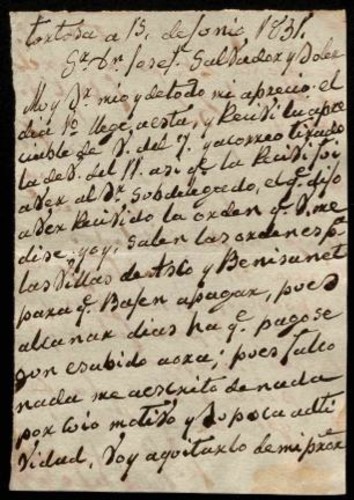 tortosa a 15. de Junio, 1831.
Sr. Dn. Josef. Salvador y Soler
Muy Sr. mio y detodo mi aprecio. el
dia 1º llege aesta, y Recivi la apre
ciable de V. del 7. y acorreo tirado
la de V. del 11. asi qe. la Recivi fui
aver al Sr. Subdelegado, el qe. dijo
aver Recivido la orden qe. V. me
dise, y oy, salen las ordenes pa.
las Villas de Asco y Benisanet
para qe. Bajen apagar, pues
alcanar dias ha qe. pago se
gun esabido aora; pues falco
nada me aescrito de nada
por cuio motivo y su poca acti
vidad, Voy aquitarlo de mi pror